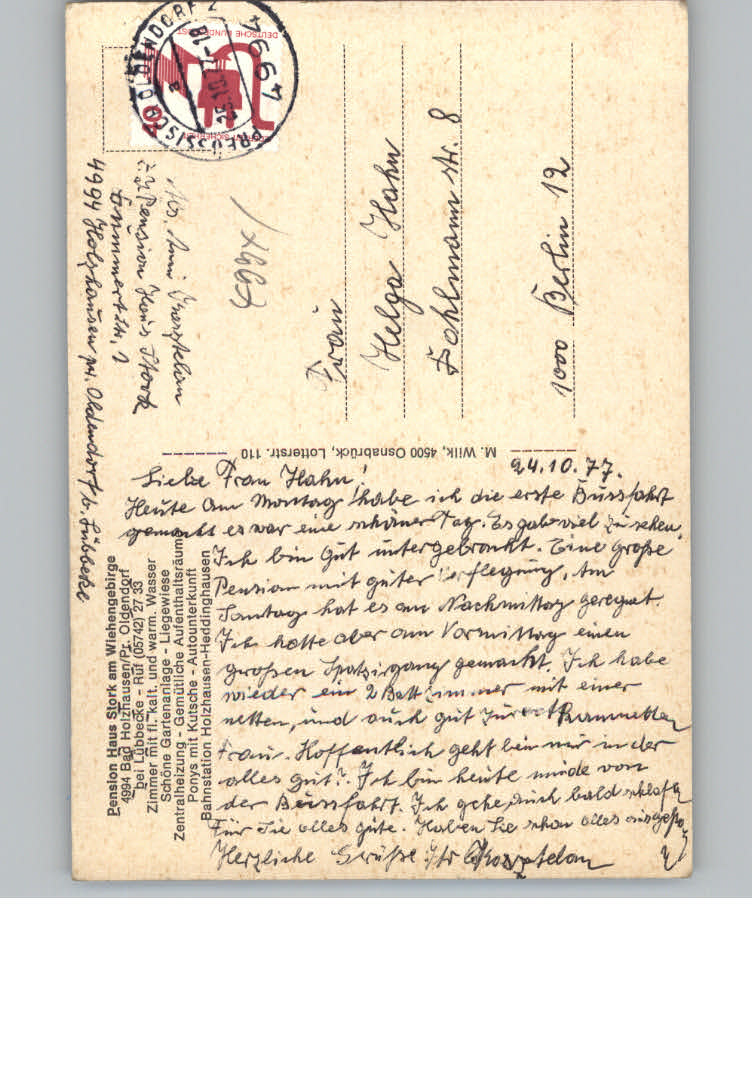 Pension Haus Stork am Wiehengebirge
4994 Bad Holzhausen/Pr. Oldendorf
bei Lübbecke - Ruf (05742) 27 33
Zimmer mit fl. kalt. und warm. Wasser
Schöne Gartenanlage - Liegewiese
Zentralheizung - Gemütliche Aufenthaltsräume
Ponys mit Kutsche - Autounterkunft
Bahnstation Holzhausen-Heddinghausen
M. Wilk, 4500 Osnabrück, Lotterstr. 110
DEUTSCHE BUNDESPOST
4994
PREUSSISCH OLDENDORF 2
a
40
Abs. Anni
z.Z Pension Haus Stork
4994 Holzhausen pr. Oldendorf b. Lübbecke
Frau
Helga Hahn
str. 8
1000 Berlin 12
24.10.77.
Liebe Frau Hahn!
Heute am Montag habe ich die erste Bussfahrt
gemacht es war eine schöner Tag. Es gab viel zu sehen.
Ich bin Gut untergebracht. Eine große
Pension mit guter Verflegung, Am
Sontag hat es am Nachmittag geregnet.
Ich hatte aber am Vormittag einen
großen Spatzirgang gemacht. Ich habe
wieder ein 2 Bettzimmer mit einer
netten, und auch gut
Frau. Hoffentlich geht bei mir in der
alles gut? Ich bin heute müde von
der Bussfahrt. Ich gehe auch bald schlafen
Für Sie alles gute. Haben Sie schon alles
Herzliche Grüße Ihr